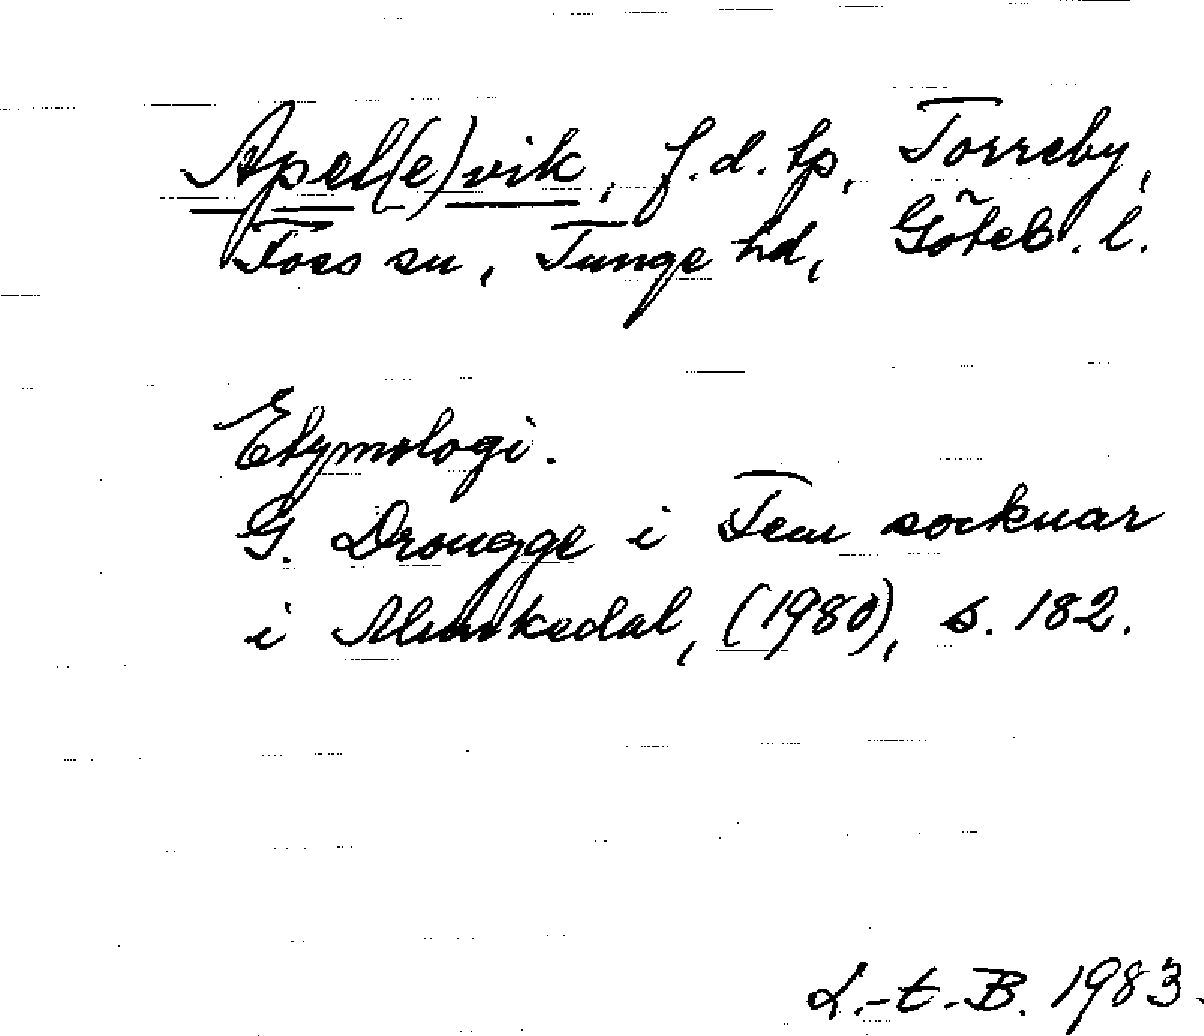 Apel(e)vik, f.d. tp, Torreby,
Foss sn, Tunge hd, Göteb. l.
Etymologi.
G. Drougge i Fem socknar
i Munkedal, (1980), s. 182.
L.-t.-B. 1983.